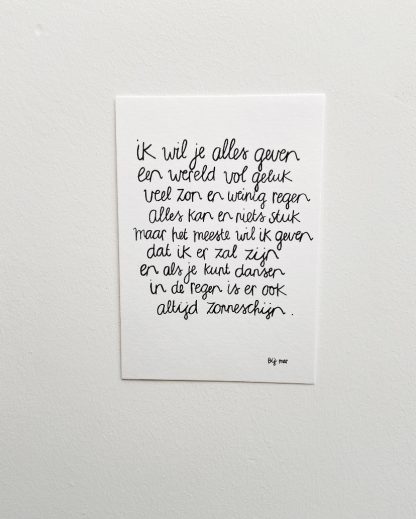 ik wil je alles geven
een wereld vol geluk
veel zon en weinig regen
alles kan en niets stuk
maar het meeste wil ik geven
dat ik er zal zijn
en als je kunt dansen
in de regen is er ook
altijd zonneschijn.
Bij mar